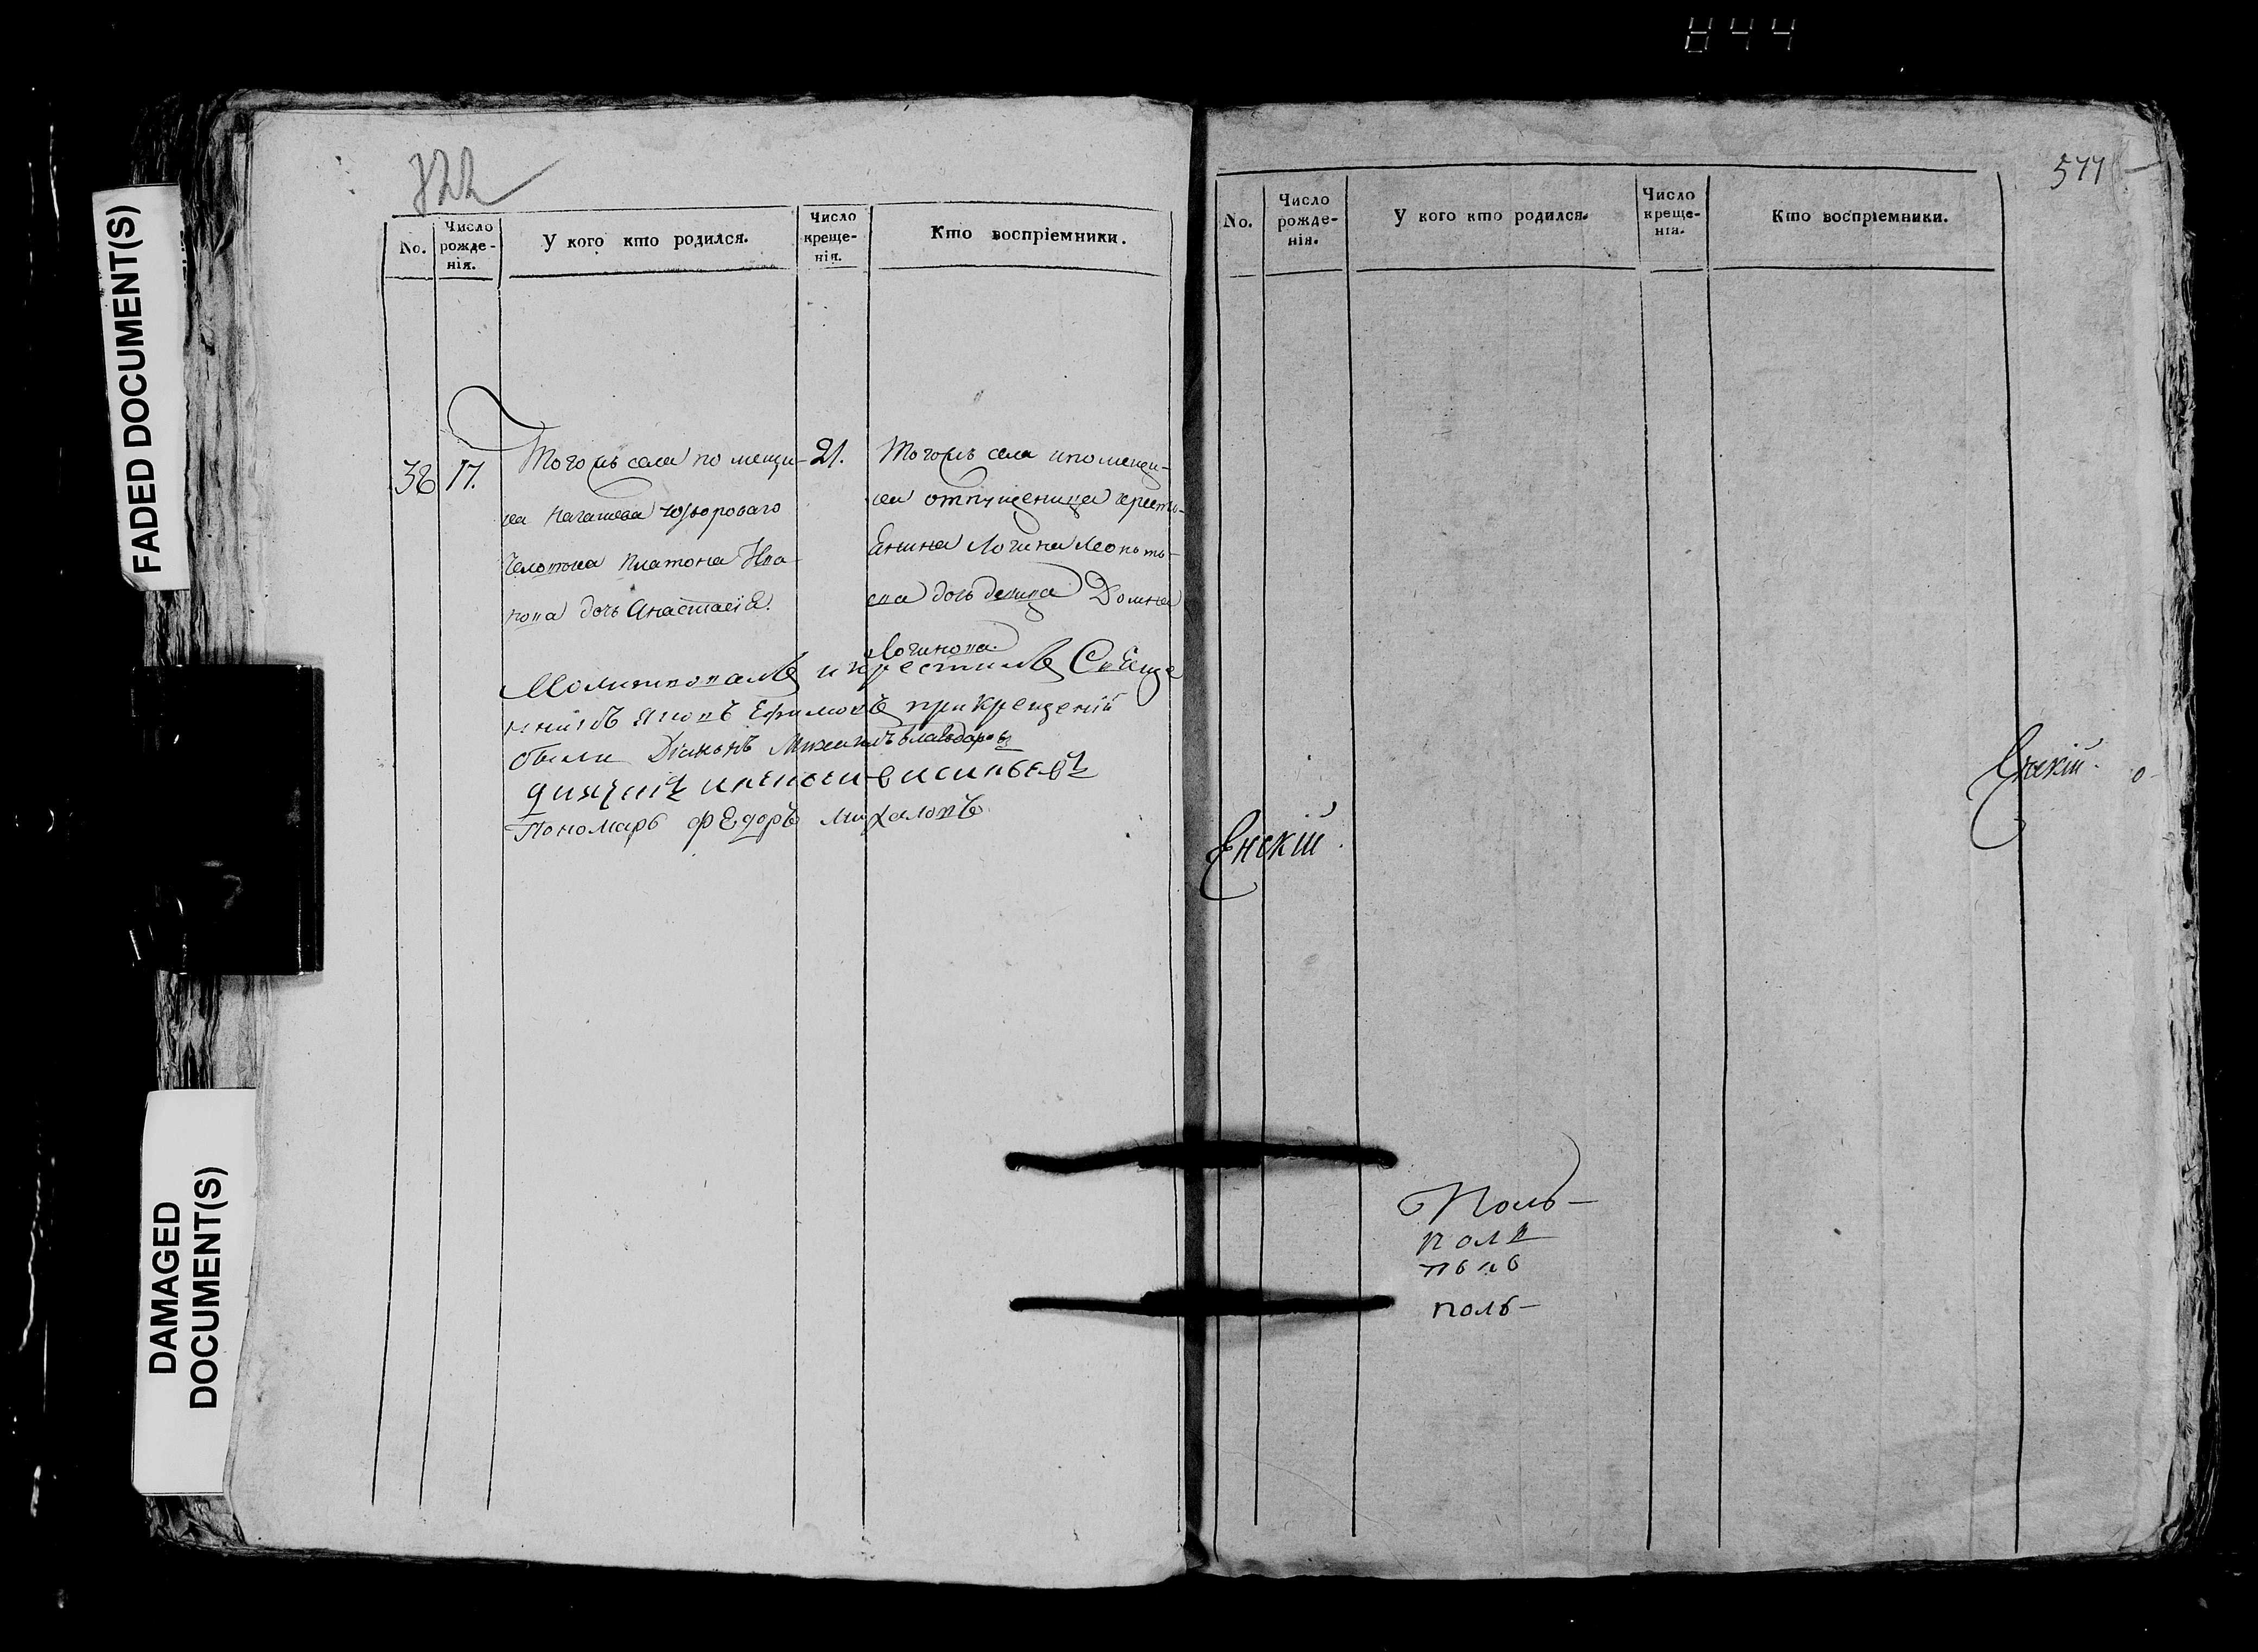 844
FADED DOCUMENT(S)
DAMAGED
DOCUMENT(S)
822
No.
Число
рожде-
нія.
У кого кто родился.
Число
креще-
нія.
Кто воспріемники.
38
17.
Тогожъ села помещи-
ка дворового
Платона Ива-
нова дочь Анастасія.
21.
Тогожъ села помещи-
ка отпущеника крестъ-
енина Логина Леонть-
ева дочь девица Домна
Логинова
Молитвовалъ и крестилъ Свеще
никъ Яковъ Ефимовъ при крещеніи
были Діаконъ Михаилъ
дьячикъ
Пономарь Федоръ Михаловъ
577
No.
Число
рожде-
нія.
У кого кто родился.
Число
креще-
нія.
Кто воспріемники.
Енскій
Поль-
поль
поль-